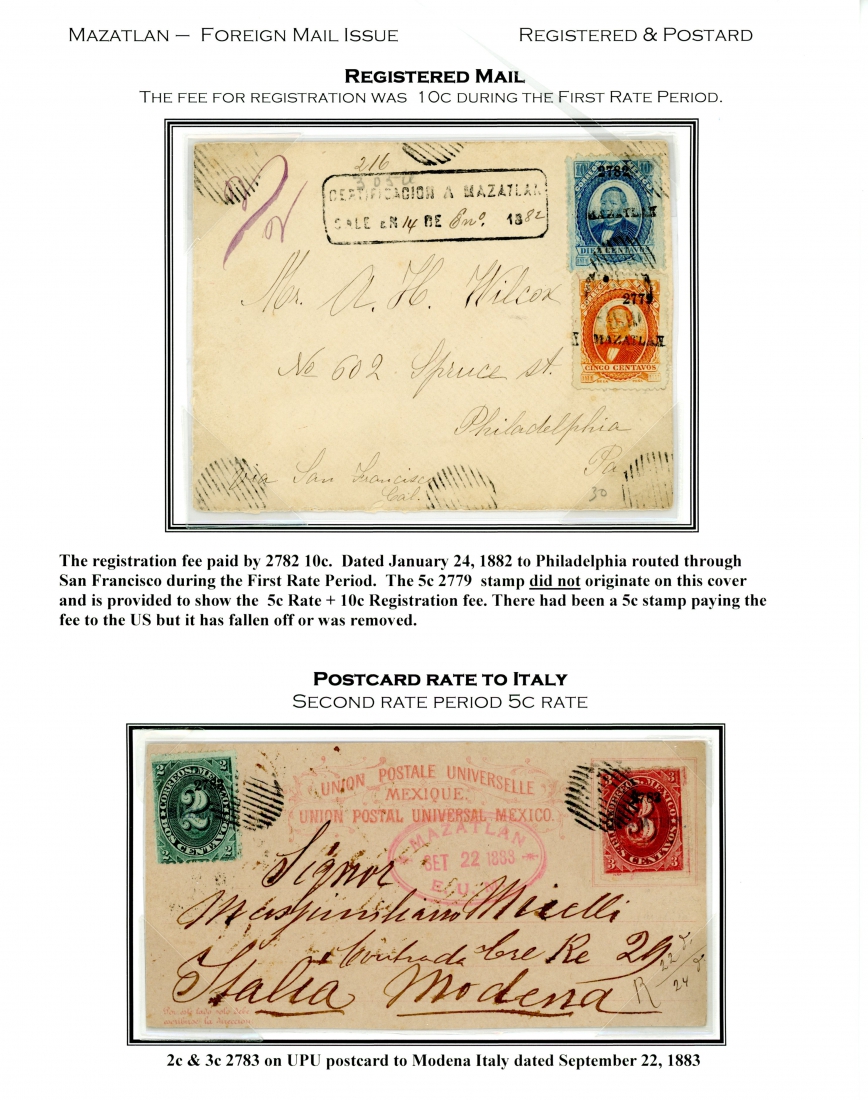 MAZATLAN – FOREIGN MAIL ISSUE
REGISTERED & POSTARD
REGISTERED MAIL
THE FEE FOR REGISTRATION WAS 10C DURING THE FIRST RATE PERIOD.
216
CERTIFICACION A MAZATLAN
SALE EN 14 DE Eno. 1882
2782
MAZATLAN
DIEZ CENTAVOS
2779
MAZATLAN
CINCO CENTAVOS
Mr. A. H. Wilcox
No 602 Spruce st.
Philadelphia
Pa
via San Francisco
Cal.
30
The registration fee paid by 2782 10c. Dated January 24, 1882 to Philadelphia routed through
San Francisco during the First Rate Period. The 5c 2779 stamp did not originate on this cover
and is provided to show the 5c Rate + 10c Registration fee. There had been a 5c stamp paying the
fee to the US but it has fallen off or was removed.
POSTCARD RATE TO ITALY
SECOND RATE PERIOD 5C RATE
CORREOS MEXICO
2
DOS CENTAVOS
UNION POSTALE UNIVERSELLE
MEXIQUE.
UNION POSTAL UNIVERSAL MEXICO.
CORREOS MEXICO
3
TRES CENTAVOS
MAZATLAN
SET 22 1883
E.U.M
Signor
Massimiliano Miselli
Contrada Cre Re 29
Italia Modena
R 22
24
Por este lado solo debe
escribirse la direccion
2c & 3c 2783 on UPU postcard to Modena Italy dated September 22, 1883